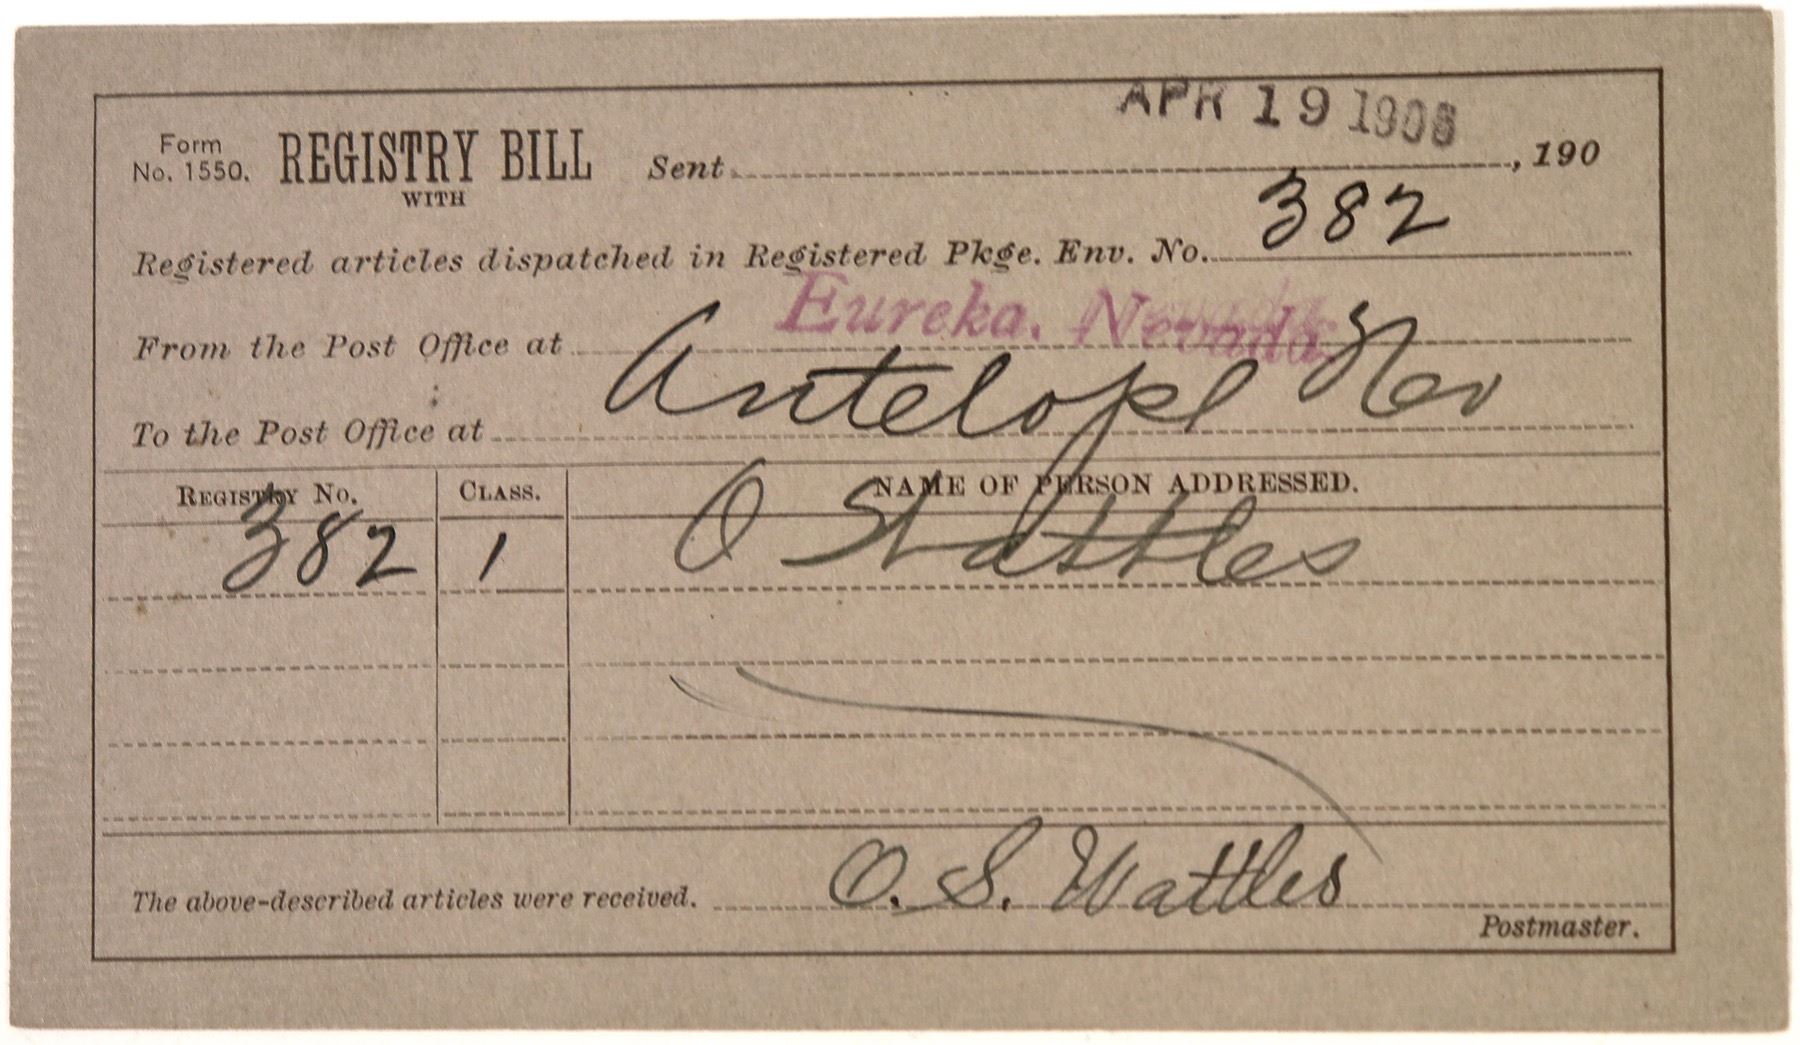 APR 19 1906
Form No. 1550. REGISTRY BILL Sent , 190
WITH
Registered articles dispatched in Registered Pkge. Env. No. 382
From the Post Office at Eureka, Nevada.
To the Post Office at Antelope Nev
REGISTRY No. CLASS. NAME OF PERSON ADDRESSED.
382 1 O S Wattles
The above-described articles were received. O. S. Wattles
Postmaster.